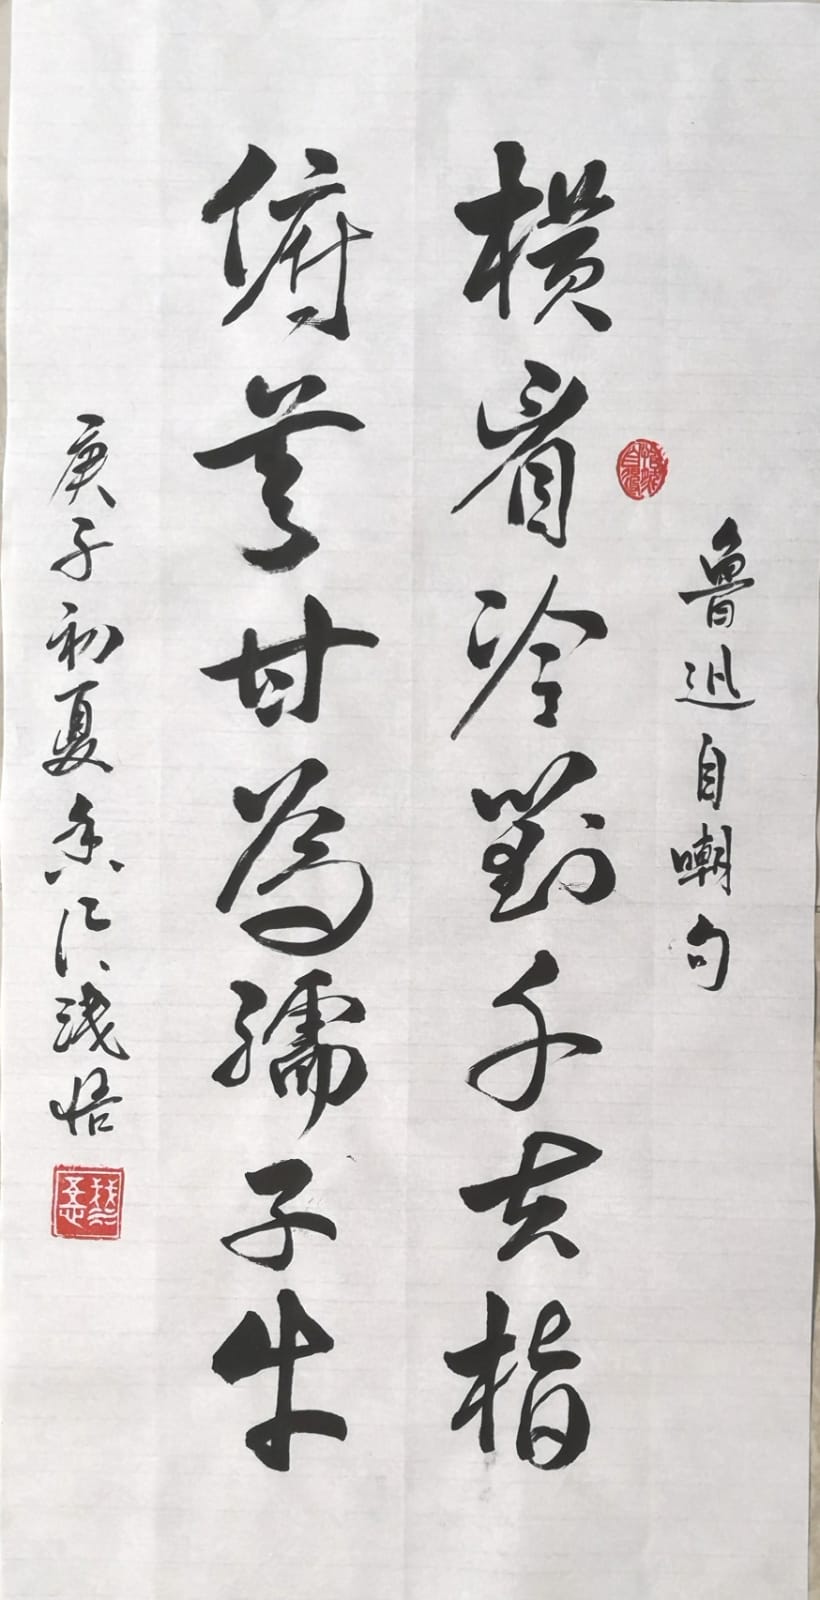 魯迅自嘲句
横眉冷對千夫指
俯首甘為孺子牛
庚子初夏浅悟